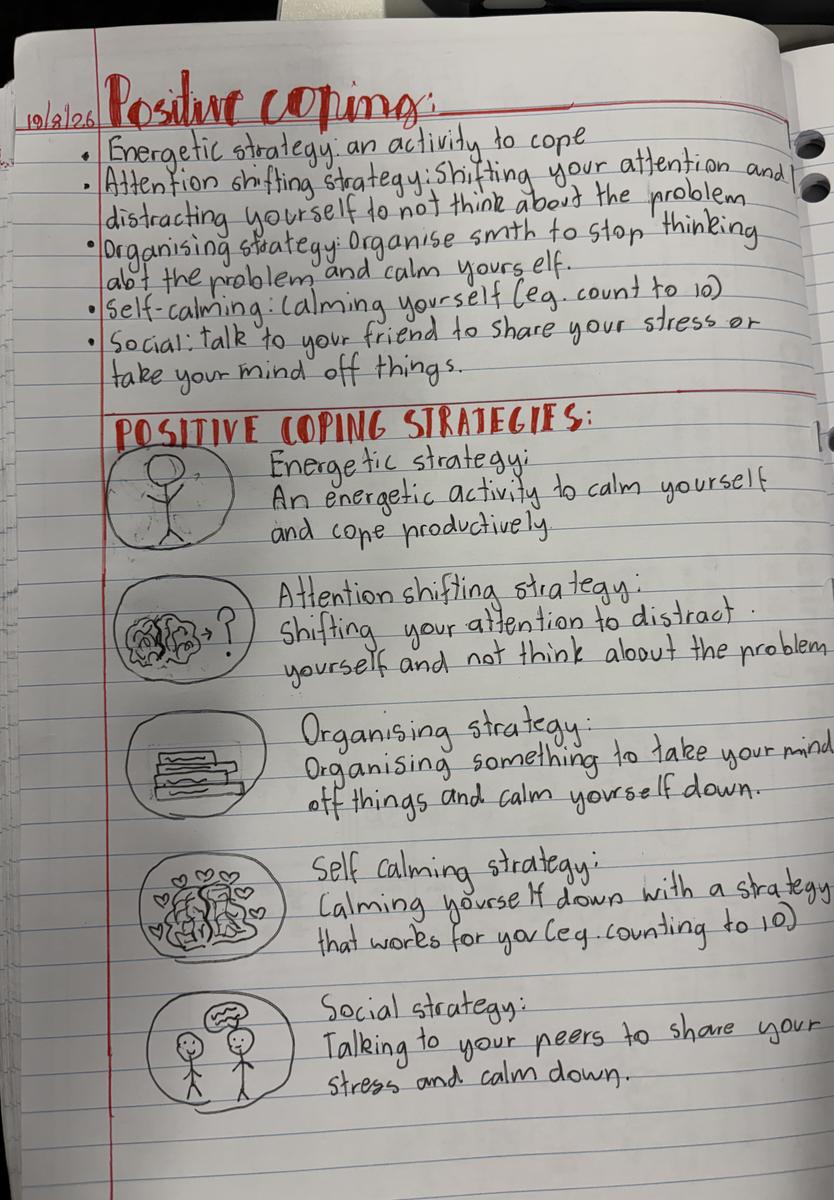 19/8/26
Positive coping:
• Energetic strategy: an activity to cope
• Attention shifting strategy: Shifting your attention and
distracting yourself to not think about the problem
• Organising strategy: Organise smth to stop thinking
abt the problem and calm yourself.
• Self-calming: Calming yourself (eg. count to 10)
• Social: talk to your friend to share your stress or
take your mind off things.
POSITIVE COPING STRATEGIES:
Energetic strategy:
An energetic activity to calm yourself
and cope productively
Attention shifting strategy:
Shifting your attention to distract
yourself and not think about the problem
?
Organising strategy:
Organising something to take your mind
off things and calm yourself down.
Self calming strategy:
Calming yourself down with a strategy
that works for you (eg. counting to 10)
Social strategy:
Talking to your peers to share your
stress and calm down.